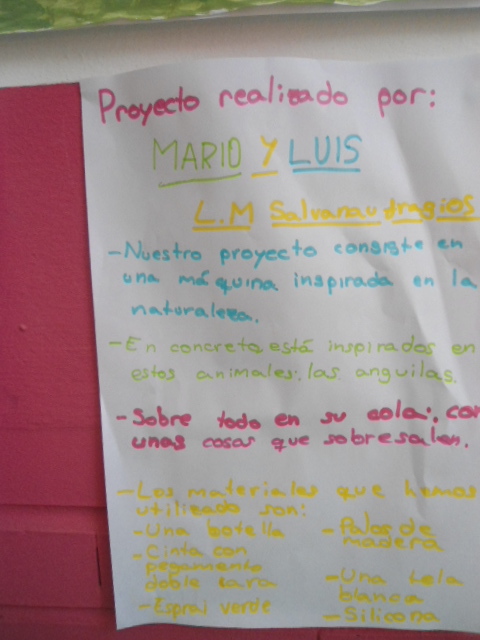 Proyecto realizado por:
MARIO Y LUIS
L.M Salvanaufragios
-Nuestro proyecto consiste en
una máquina inspirada en la
naturaleza.
-En concreto, está inspirados en
estos animales: las anguilas.
-Sobre todo en su cola, con
unas cosas que sobresalen.
-Los materiales que hemos
utilizado son:
-Una botella
-Cinta con
pegamento
doble cara
-Espral verde
-Palos de
madera
-Una tela
blanca
-Silicona